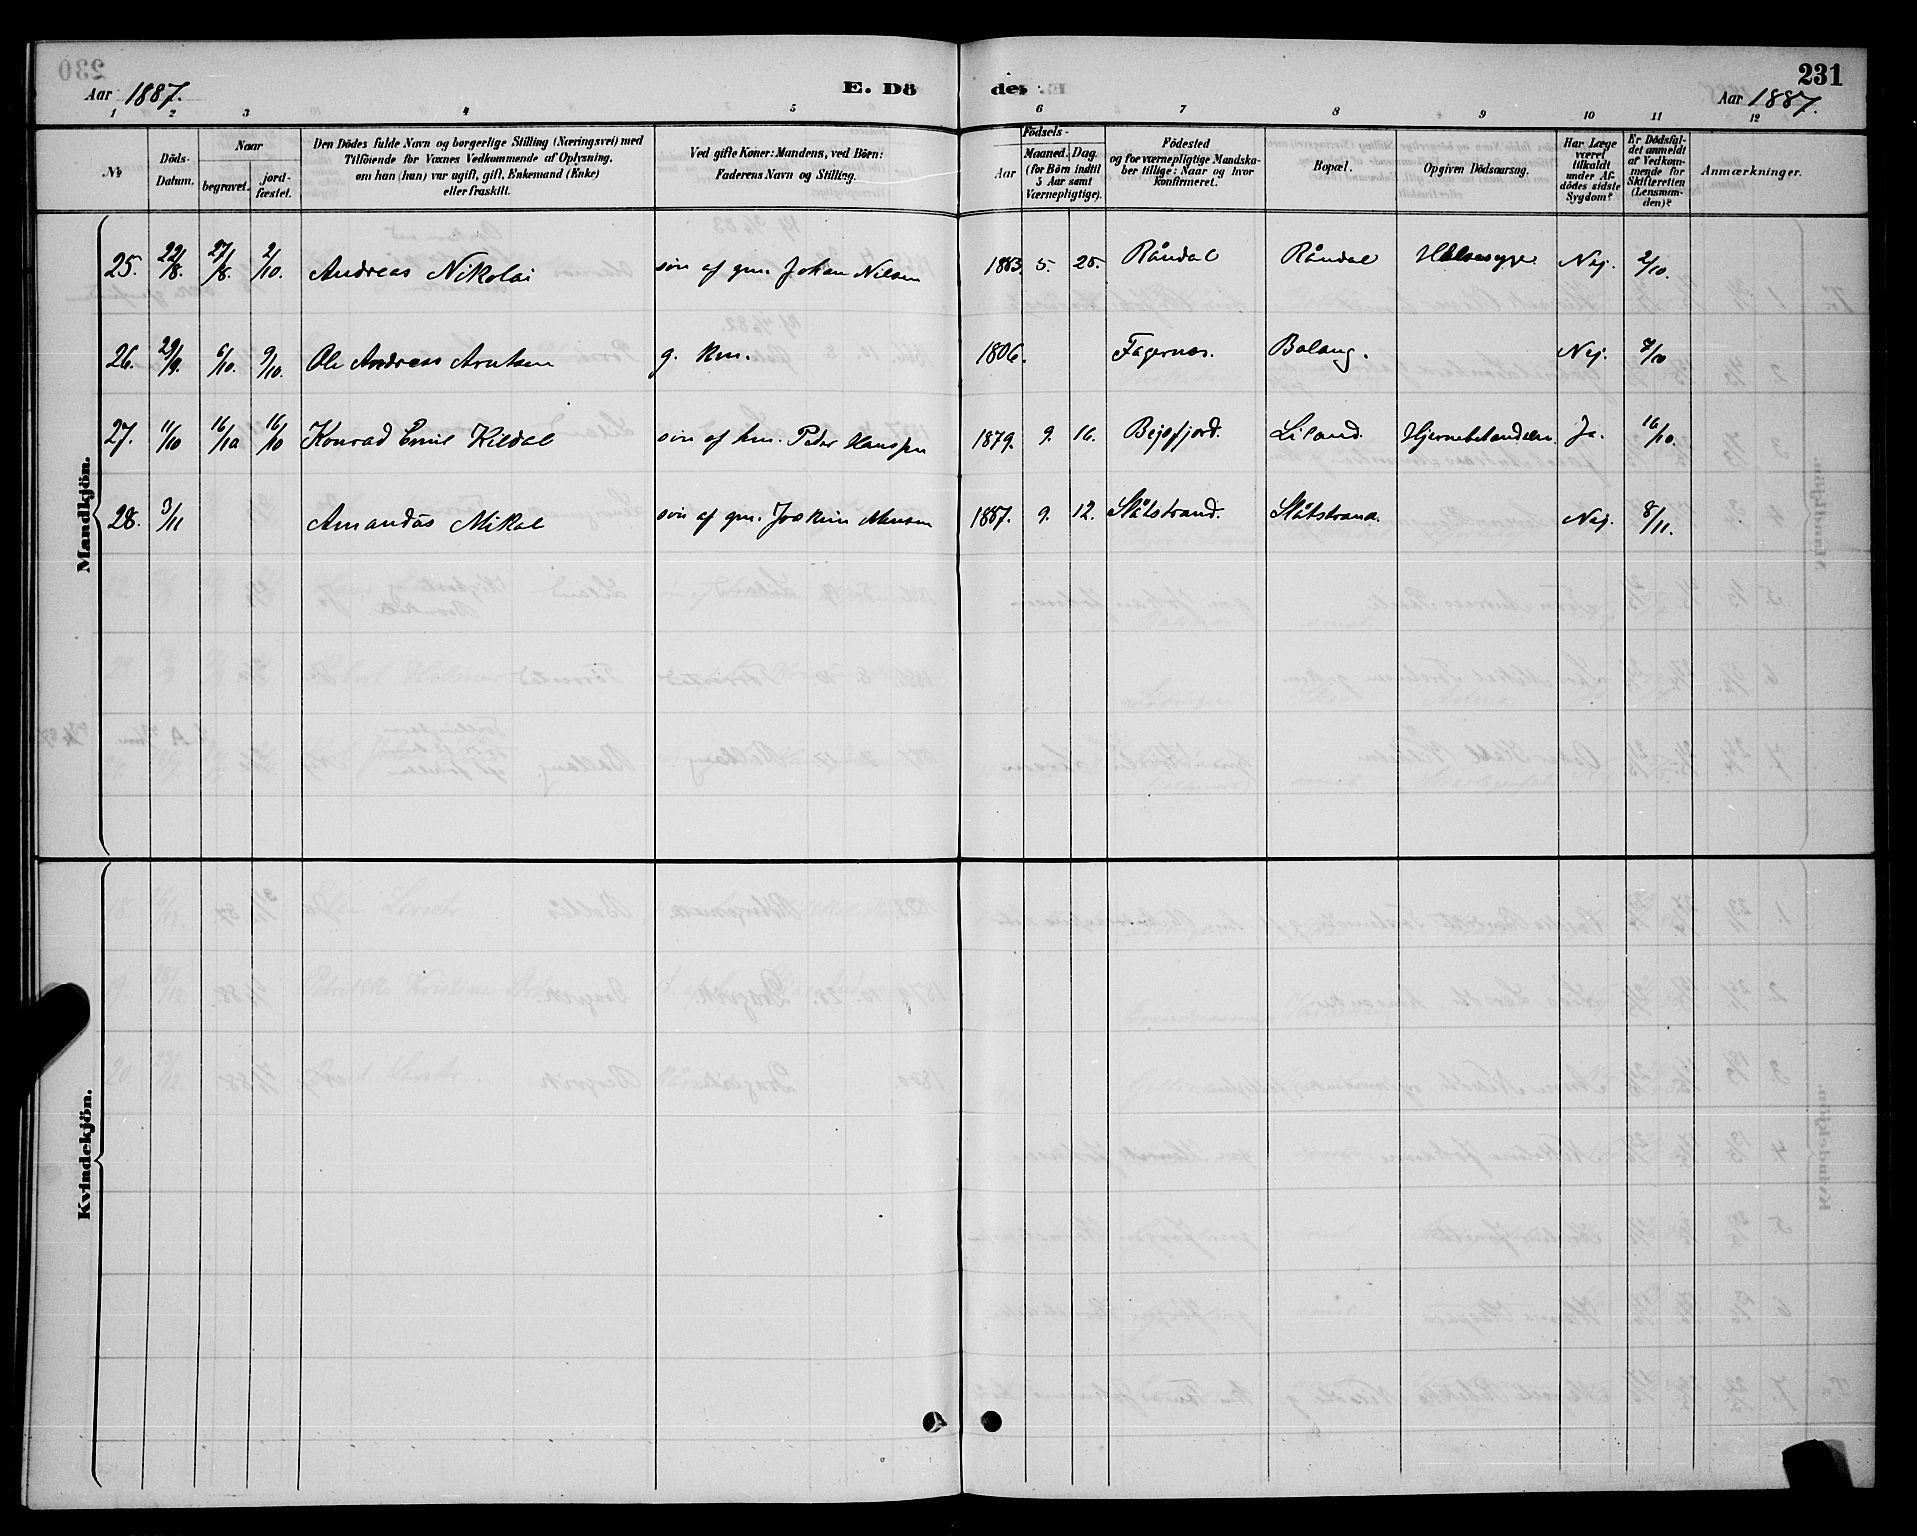 Aar 1887.
E. Döder.
231
Aar 1887.
1 2 3 4 5 6 7 8 9 10 11 12
No
Döds-Datum.
Naar
begravet.
jord-fæstet.
Den Dödes fulde Navn og borgerlige Stilling (Næringsvei) med
Tilföiende for Voxnes Vedkommende af Oplysning,
om han (hun) var ugift, gift, Enkemand (Enke)
eller fraskilt.
Ved gifte Koner: Mandens, ved Börn:
Faderens Navn og Stilling.
Födsels-
Aar
Maaned. Dag.
(for Börn indtil
5 Aar samt
Værnepligtige).
Födested
og for værnepligtige Mandska-
ber tillige: Naar og hvor
konfirmeret.
Bopæl.
Opgiven Dödsaarsag.
Har Læge
været
tilkaldt
under Af-
dödes sidste
Sygdom?
Er Dödsfal-
det anmeldt
af Vedkom-
mende for
Skifteretten
(Lensman-
den)?
Anmærkninger.
Mandkjön.
25. 22/8. 27/8. 2/10. Andreas Nikolai søn af gm. Johan Nilsen 1883. 5. 25. Råndal Råndal Halsesyge Nej. 2/10.
26. 29/9. 6/10. 9/10. Ole Andreas Arntsen g. km. 1806. Fagernes. Balang. Nej. 7/10
27. 11/10 16/10 16/10 Konrad Emil Kildal søn af hm. Peter Hanssen 1879. 9. 16. Bejsfjord. Liland. Hjernebetændelse. Ja. 16/10.
28. 3/11 Amandus Mikal søn af gm. Joakim 1887. 9. 12. Slåtstrand. Slåtstrand. Nej. 8/11.
Kvindekjön.